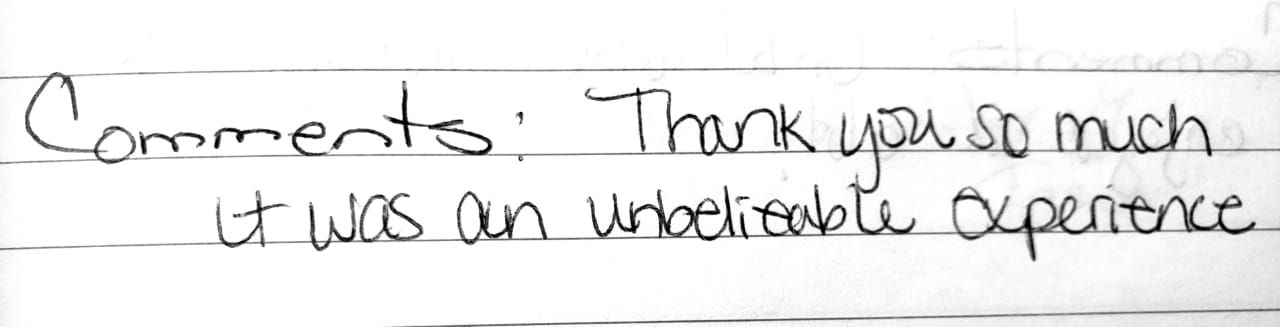 Comments: Thank you so much
it was an unbelieable experience